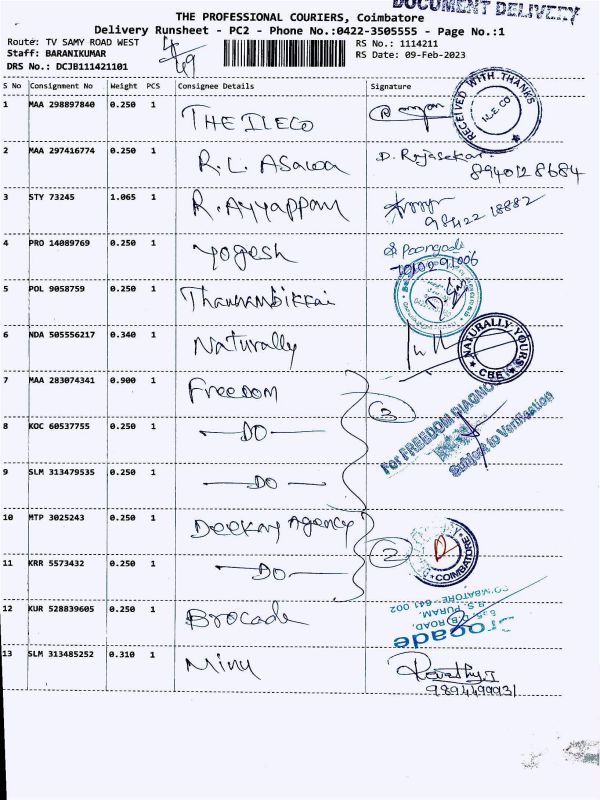 DOCUMENT DELIVERY
THE PROFESSIONAL COURIERS, Coimbatore
Delivery Runsheet - PC2 - Phone No.:0422-3505555 - Page No.:1
Route: TV SAMY ROAD WEST RS No.: 1114211
Staff: BARANIKUMAR RS Date: 09-Feb-2023
DRS No.: DCJB111421101
4/49
S No Consignment No Weight PCS Consignee Details Signature
1 MAA 298897840 0.250 1 THE ILECO RECEIVED WITH THANKS I.L.E.CO.
2 MAA 297416774 0.250 1 R.L. ASawa D. Rajasekar
8940128684
3 STY 73245 1.065 1 R.Ayyappan
9842218882
4 PRO 14089769 0.250 1 Yogesh Poongodi
7010291006
5 POL 9058759 0.250 1 Thannambikkai
6 NDA 505556217 0.340 1 Naturally NATURALLY YOURS CBE
7 MAA 283074341 0.900 1 Freedom 3
For FREEDOM DIAGNO
Subject to Verification
8 KOC 60537755 0.250 1 DO
9 SLM 313479535 0.250 1 DO
10 MTP 3025243 0.250 1 Deekay Agency
11 KRR 5573432 0.250 1 DO 2 COIMBATORE
12 KUR 528839605 0.250 1 Brocade
Brocade
R.S. PURAM,
COIMBATORE - 641 002
13 SLM 313485252 0.310 1 Minu Revathy.J
9894499931